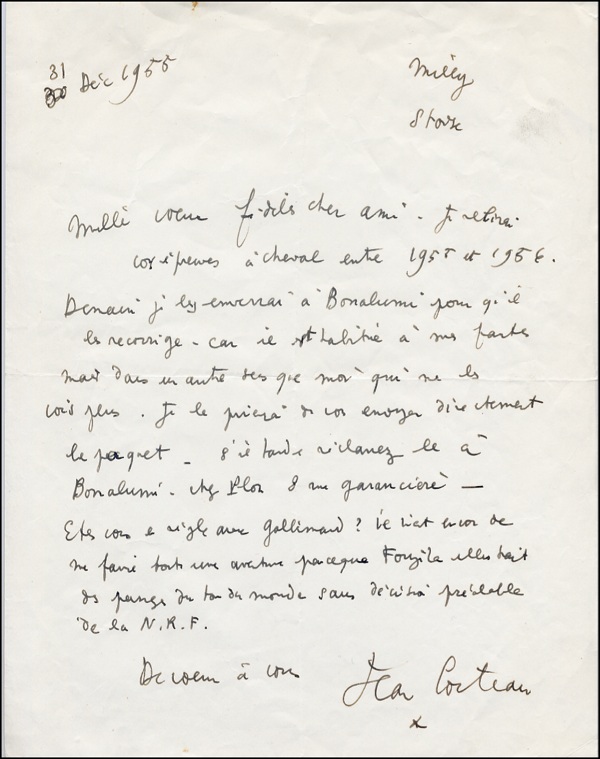 31 Déc 1955
Milly
S et Oise
Mille voeux fidèles cher ami. Je relirai
vos épreuves à cheval entre 1955 et 1956.
Demain je les enverrai à Bonalumi pour qu'il
les recorrige - car il est habitué à mes fautes
mais dans un autre sens que moi qui ne les
vois plus. Je le prierai de vos envoyer directement
le paquet - S'il tarde réclamez le à
Bonalumi. chez Plon 8 rue garancière —
Etes vous en règle avec Gallimard? il vient encor de
me faire toute une aventure parceque illustrait
des passages du tour du monde sans décision préalable
de la N.R.F.
De coeur à vous
Jean Cocteau